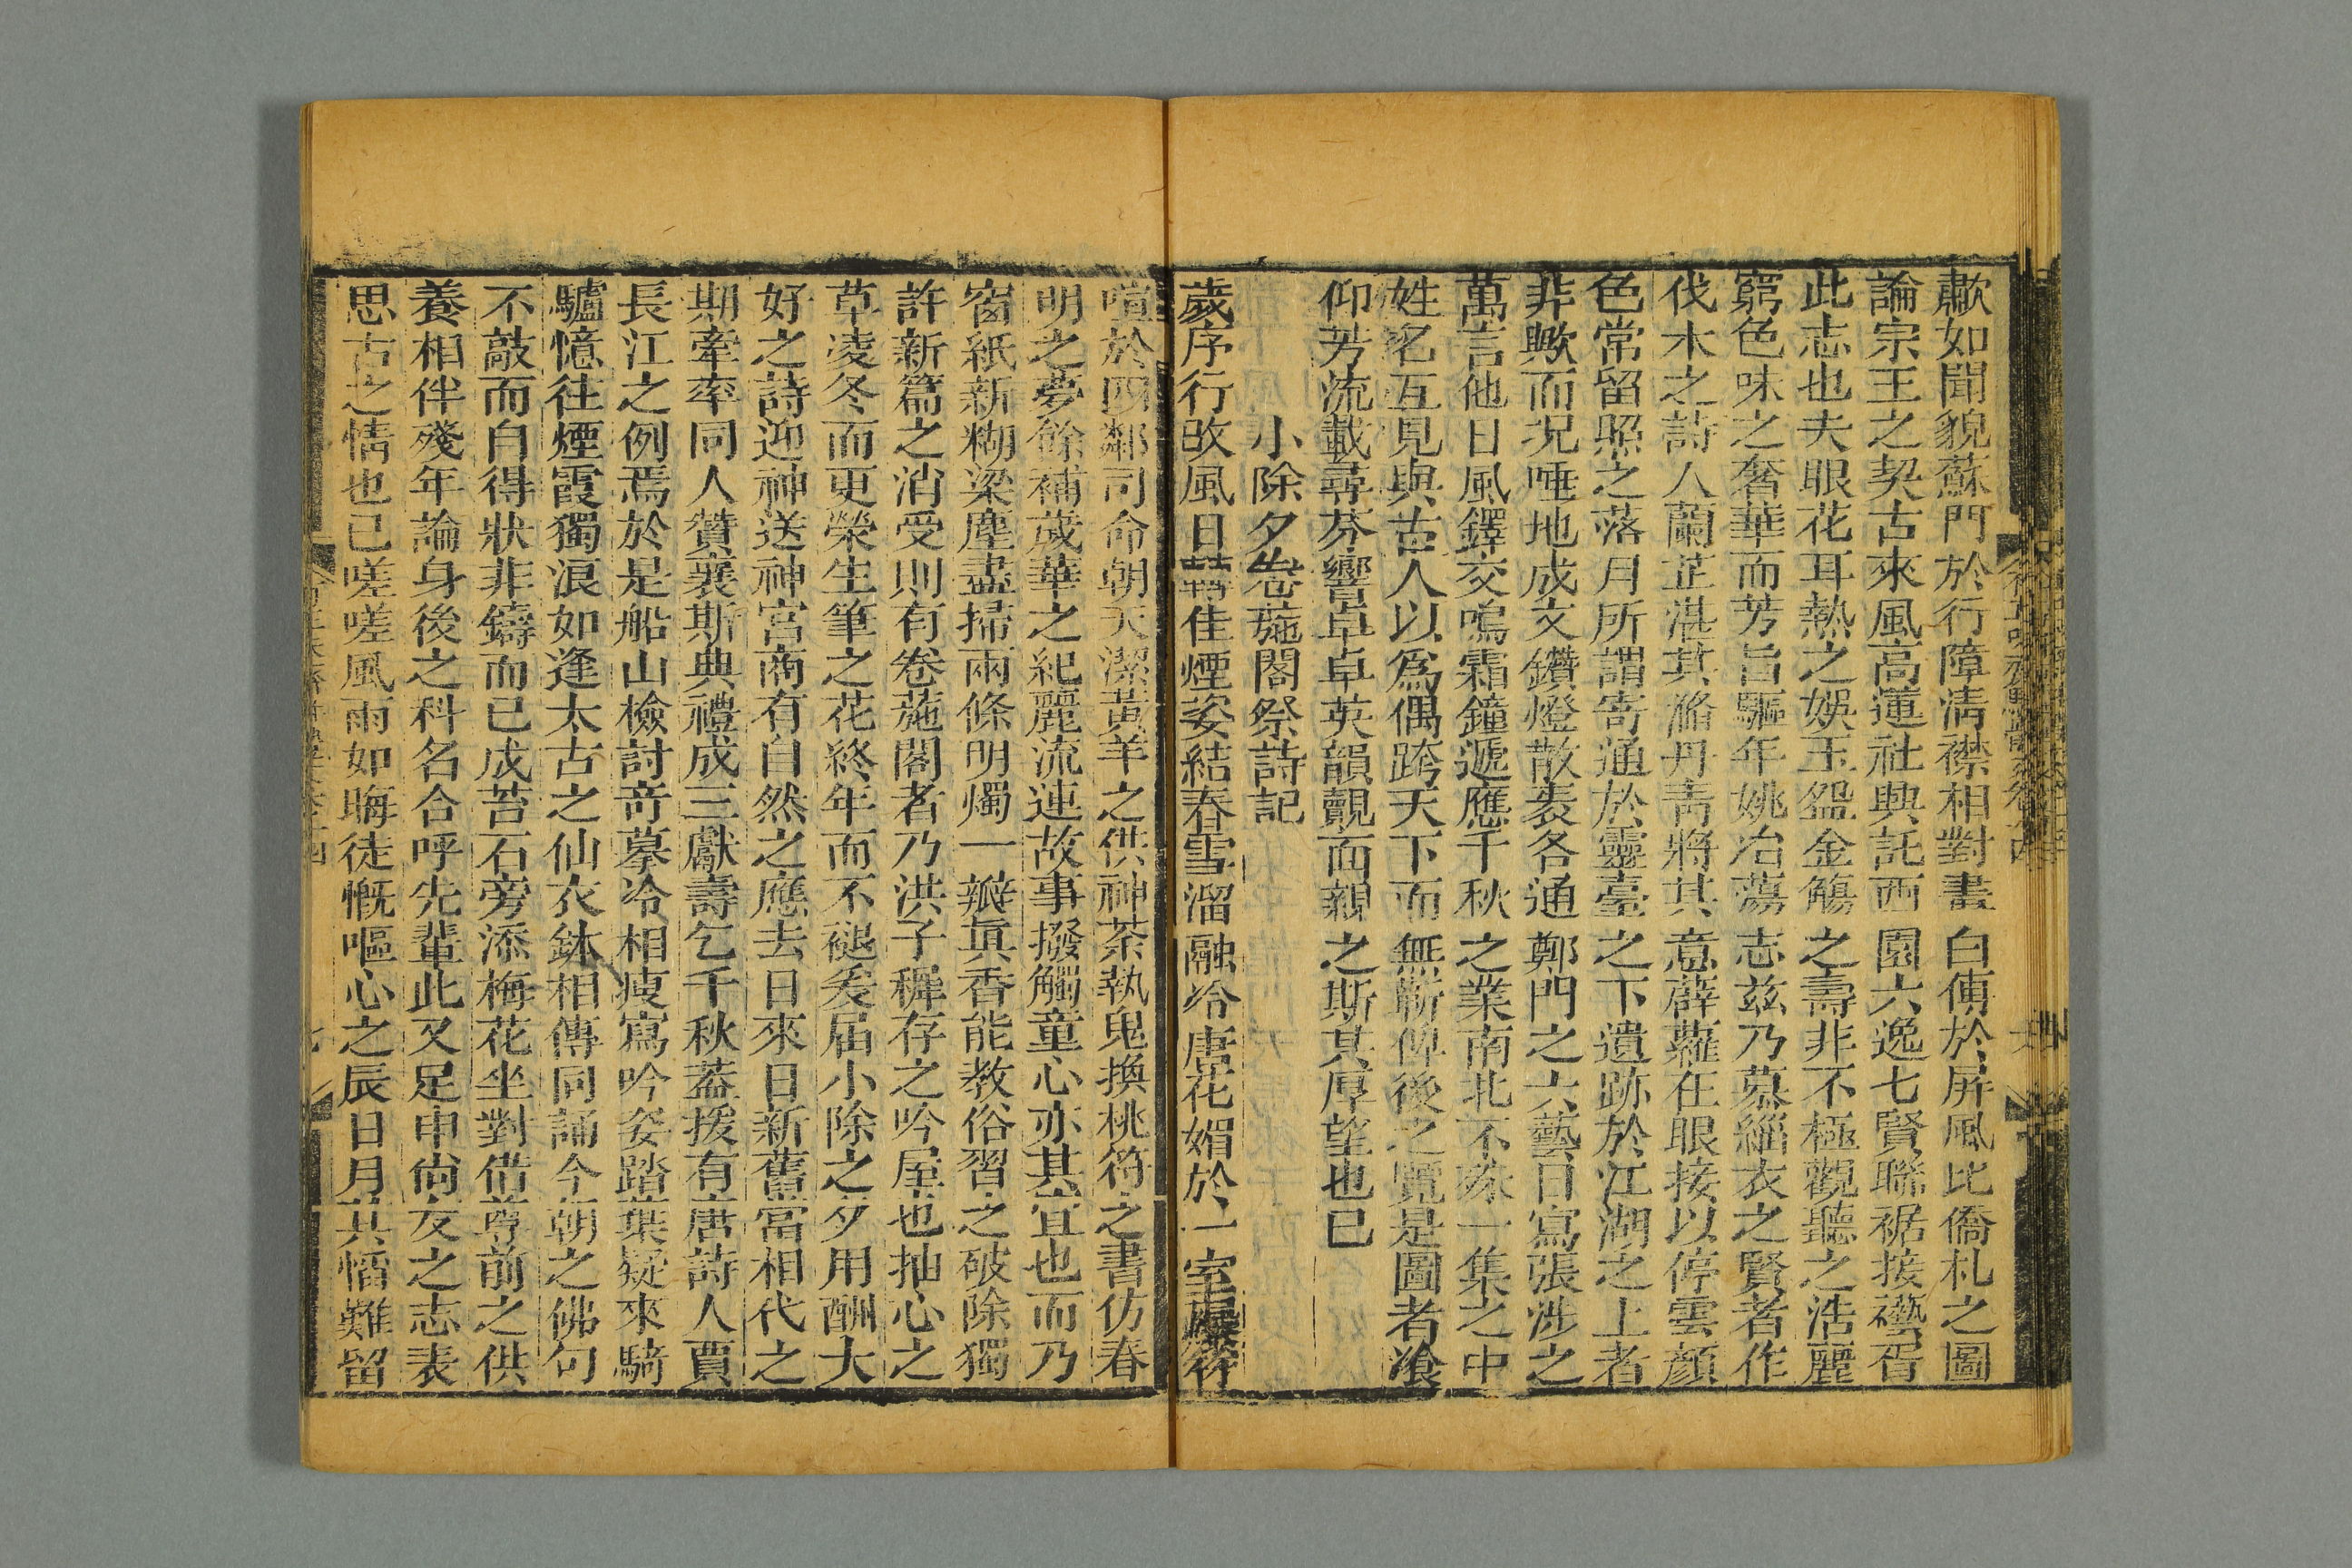 歗如聞貌蘇門於行障清襟相對畫白傅於屏風比僑札之圖
論宗王之契古來風高蓮社興託西園六逸七賢聯裾接襼胥
此志也夫眼花耳熱之娛玉盌金觴之壽非不極觀聽之浩麗
窮色味之奢華而芳旨驅年姚冶蕩志茲乃慕緇衣之賢者作
伐木之詩人蘭芷湛其滫丹靑將其意薜蘿在眼接以停雲顏
色常留照之落月所謂寄通於靈臺之下遺跡於江湖之上者
非歟而況唾地成文鑽燈散袠各通鄭門之六藝日寫張涉之
萬言他日風鐸交鳴霜鐘遞應千秋之業南北不殊一集之中
姓名互見與古人以爲偶跨天下而無斬俾後之覽是圖者飡
仰芳流載尋芬響卓卓英韻覿面親之斯其厚望也已
小除夕卷葹閣祭詩記
歲序行改風日韶佳煙姿結春雪溜融冷唐花媚於一室爆竹
喧於四鄰司命朝天潔黃羊之供神荼執鬼換桃符之書仿春
明之夢餘補歲華之紀麗流連故事撥觸童心亦其宜也而乃
窗紙新糊梁塵盡掃兩條明燭一瓣眞香能教俗習之破除獨
許新篇之消受則有卷葹閣者乃洪子穉存之吟屋也抽心之
草凌冬而更榮生筆之花終年而不褪爰届小除之夕用酬大
好之詩迎神送神宮商有自然之應去日來日新舊當相代之
期牽率同人贊襄斯典禮成三獻壽乞千秋蓋援有唐詩人賈
長江之例焉於是船山檢討奇摹冷相瘦寫吟姿踏葉疑來騎
驢憶往煙霞獨浪如逢太古之仙衣鉢相傳同誦今朝之佛句
不敲而自得狀非鑄而已成苔石旁添梅花坐對借尊前之供
養相伴殘年論身後之科名合呼先輩此又足申尙友之志表
思古之情也已嗟嗟風雨如晦徒慨嘔心之辰日月其慆難留